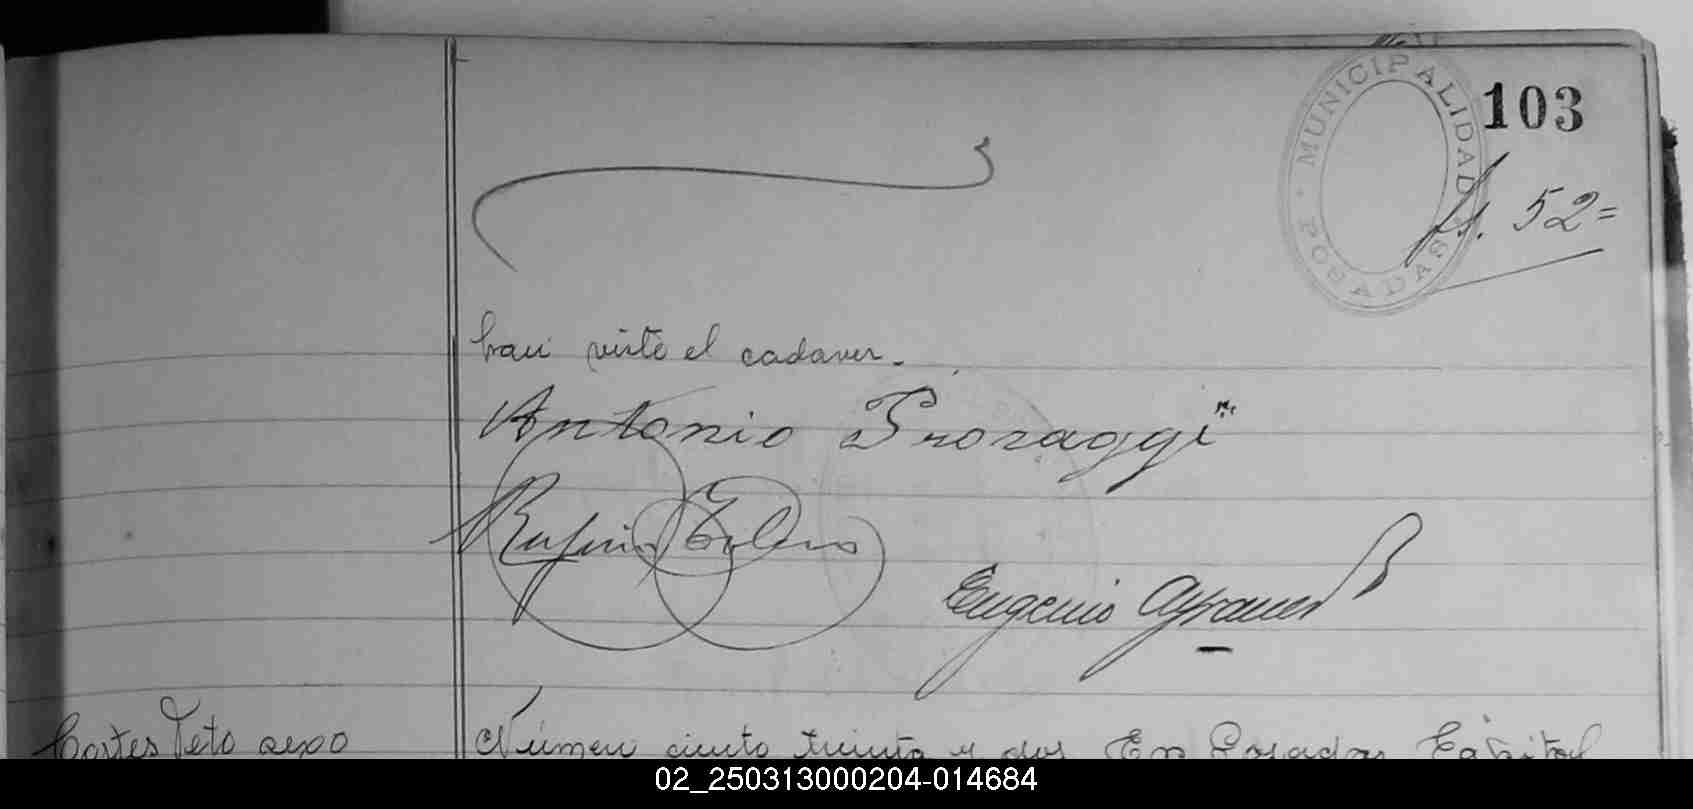 MUNICIPALIDAD
POSADAS
103
fs. 52=
han visto el cadaver.
Antonio
Rufino
Eugenio
Cortes Feto sexo
Número ciento treinta y dos En Posadas Capital
02_250313000204-014684